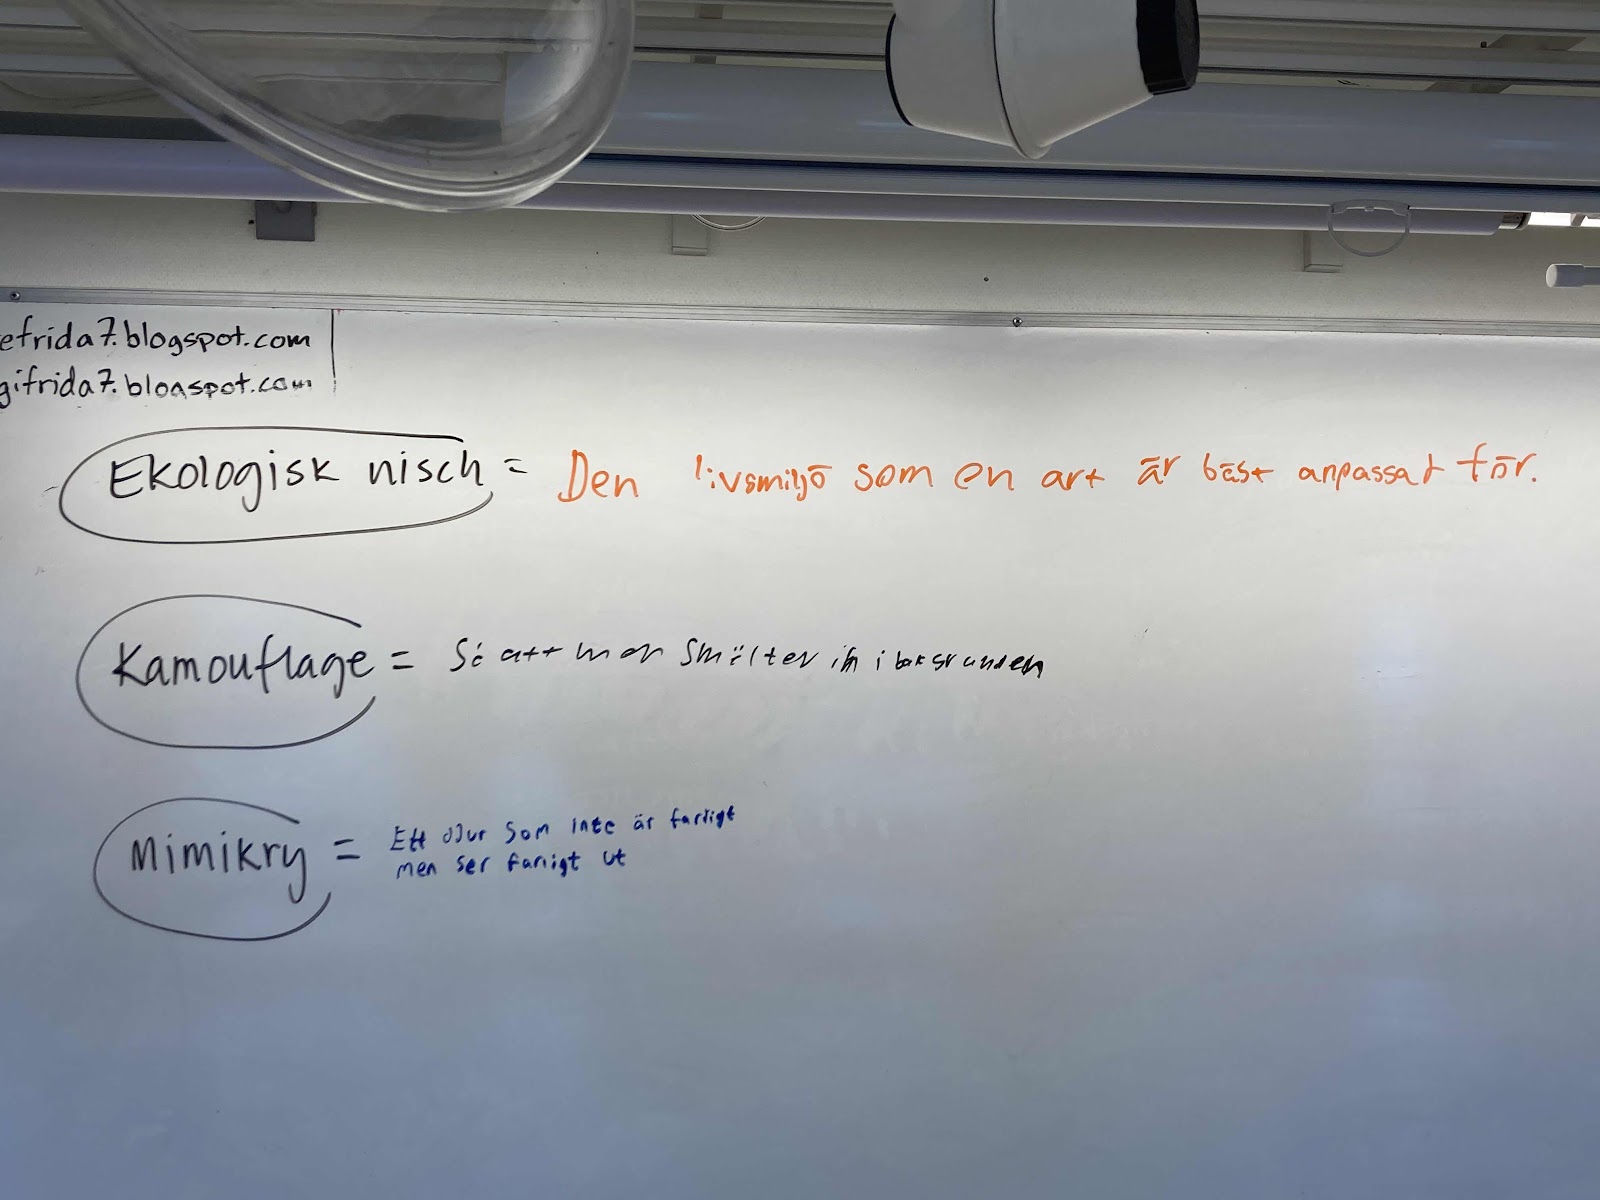 efrida7.blogspot.com
gifrida7.blogspot.com
Ekologisk nisch = Den livsmiljö som en art är bäst anpassat för.
Kamouflage = Så att man smälter in i bakgrunden
Mimikry = Ett djur som inte är farligt
men ser farligt ut